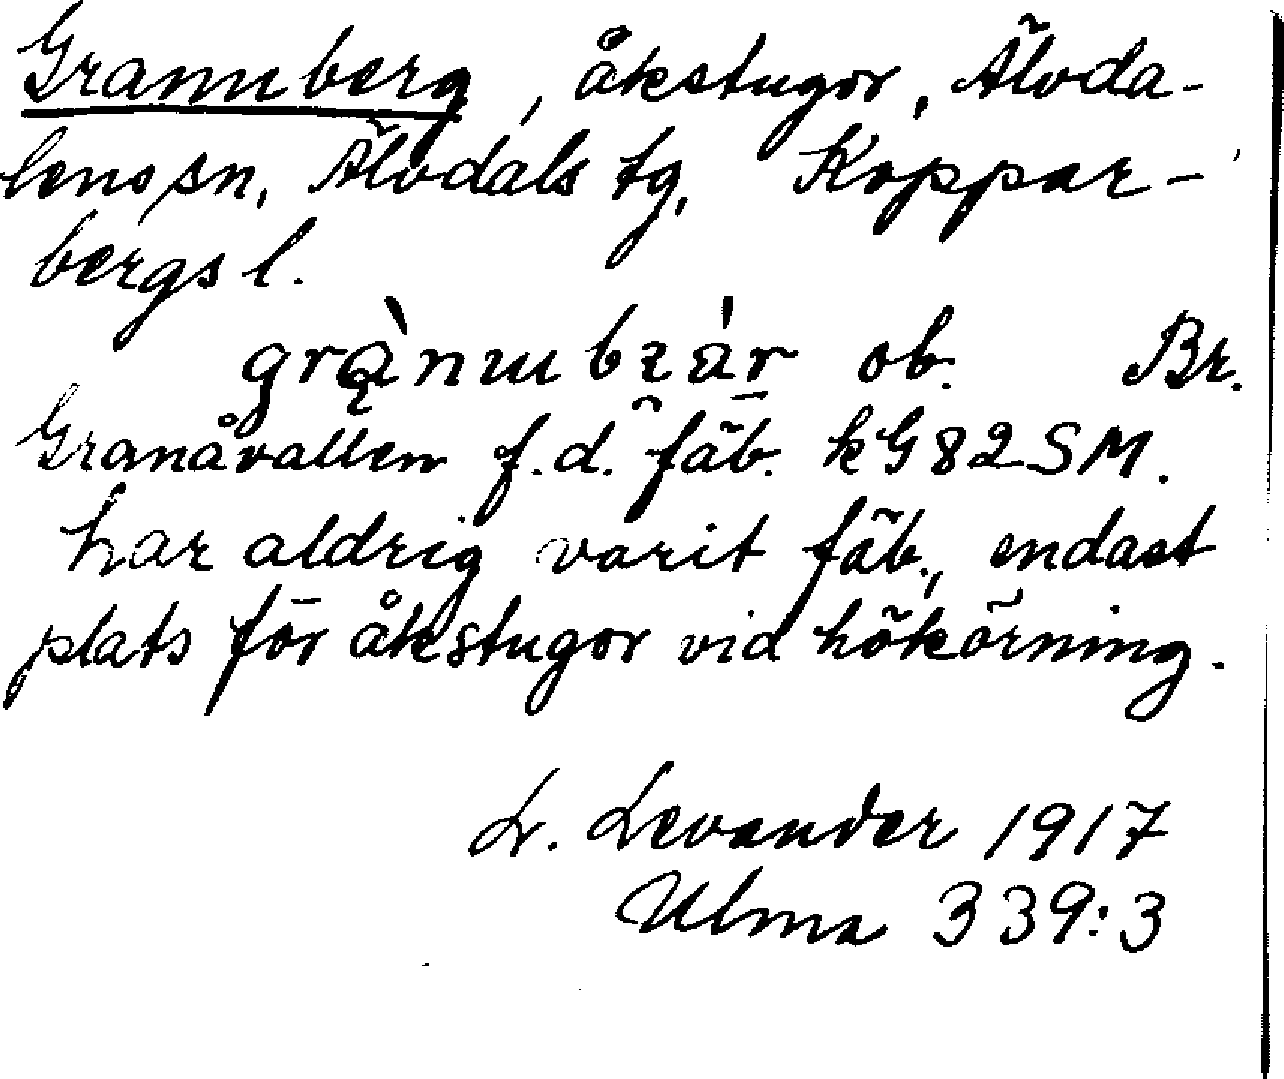 Grannberg, åkstugor, Älvda-
lens sn, Älvdals tg, Koppar-
bergs l.
ob. Br.
Granåvallen f.d. fäb. kG82SM.
har aldrig varit fäb., endast
plats för åkstugor vid hökörning.
L. Levander 1917
Ulma 339:3